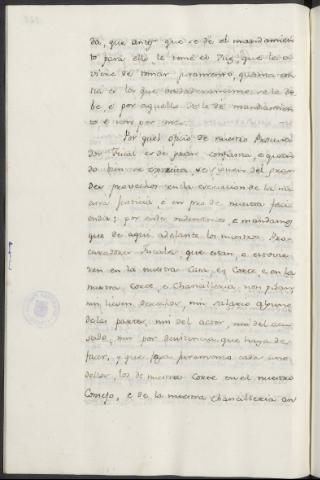 da, que antes que se dé el mandamien
to para ello le tome el Juez que le o
viere de tomar juramento, quanta con
tia es lo que verdaderamente se le de
be, e por aquello se le dé mandamien
to e non por mas.
Por quel oficio de nuestro Procura
dor Fiscal es de gran confianza, e quan
do bien se exercita, se siguen del gran
des provechos en la execucion de la nu
estra Justicia e en pro de nuestra faci
enda; por ende ordenamos e mandamos
que de aqui adelante los nuestros Pro
curadores Fiscales que estan, e estovie
ren en la nuestra Casa, e Corte e en la
nuestra Corte, e Chancilleria, non pidan
nin lleven derechos, nin salario alguno
de las partes, nin del actor, nin del acu
sado, nin por sentencia que haya de
facer, y que fagan juramento cada uno
dellos, los de nuestra Corte en el nuestro
Consejo, e de la nuestra Chancilleria an